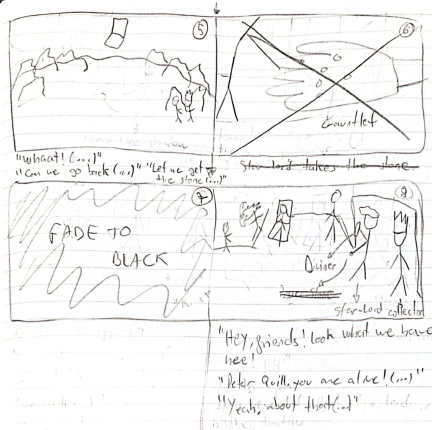 5
6
Gauntlet
"Whaat! (...)"
"Can we go back (...)" "Let me get
the stone (...)"
Star-Lord takes the stone
7
FADE TO
BLACK
8
Star-Lord
collector
"Hey, friends! Look what we have
here!
"Peter Quill, you are alive! (...)"
"Yeah, about that (...)